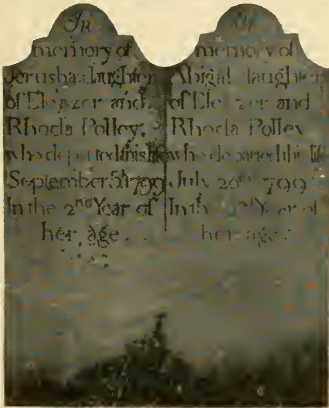 In
memory of
Jerusha daughter
of Eleazer and
Rhoda Polley,
who departed this life
September 5th 1799
In the 2nd Year of
her age
memory of
Abigal daughter
of Eleazer and
Rhoda Polley
who departed this life
July 26th 1799
In the Year of
her age